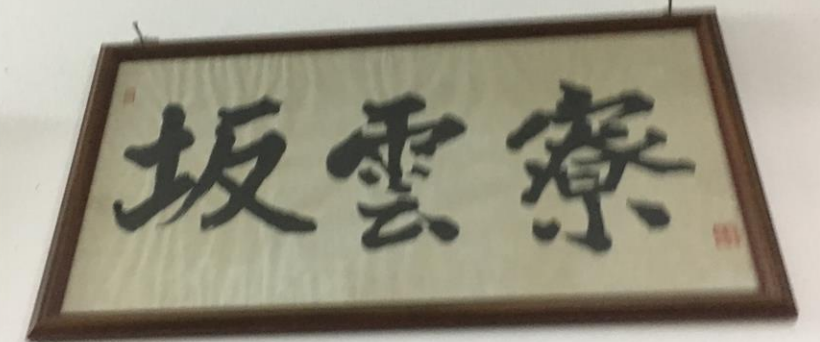 坂雲寮